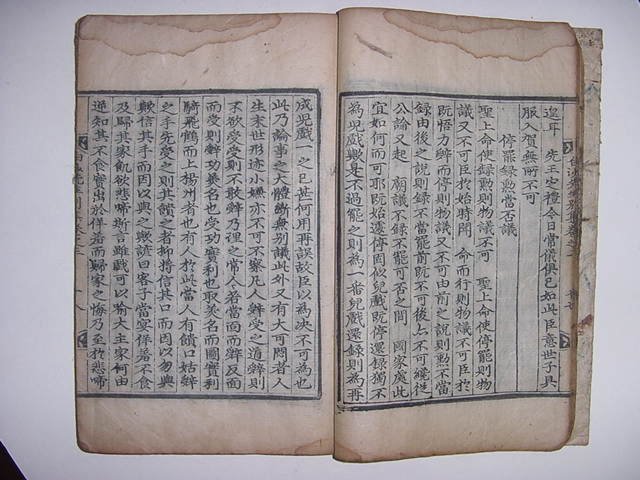 遑耳　先王定禮今日常儀俱已如此臣意世子具
服入賀無所不可
停罷錄勲當否議
聖上命使錄勲則物議不可　聖上命使停罷則物
議又不可臣於始時聞　命而行則物議不可臣於
既悟力辭而停則物議又不可由前之說則勲不當
錄由後之說則錄不當罷前既不可後亦不可縱從
公論又起　廟議不錄不罷可否之間　國家處此
宜如何而可耶既始遽停固似兒戲既停還錄獨不
為兒戲歟是不過罷之則為一番兒戲還錄則為再
成兒戲一之已甚何用再誤故臣以為決不可為也
此乃論事之大體斷無別議此外又有大可悶者人
生末世形迹小嫌亦不可不察凡人辭受之道辭則
不欲受受則不敢辭乃理之常人若當面而辭反面
而受則辭功美名也受功實利也取美名而圖實利
騎飛鶴而上揚州者也有人於此當人有饋口姑辭
之手先受之則其饋之者抑將信其口而因以勿與
歟信其手而因以與之歟諺曰客子當宴佯若不食
乃歸其家飢欲悲啼斯言雖戲可以喻大主家何由
逆知其不食實出於佯若而歸家之悔乃至於悲啼